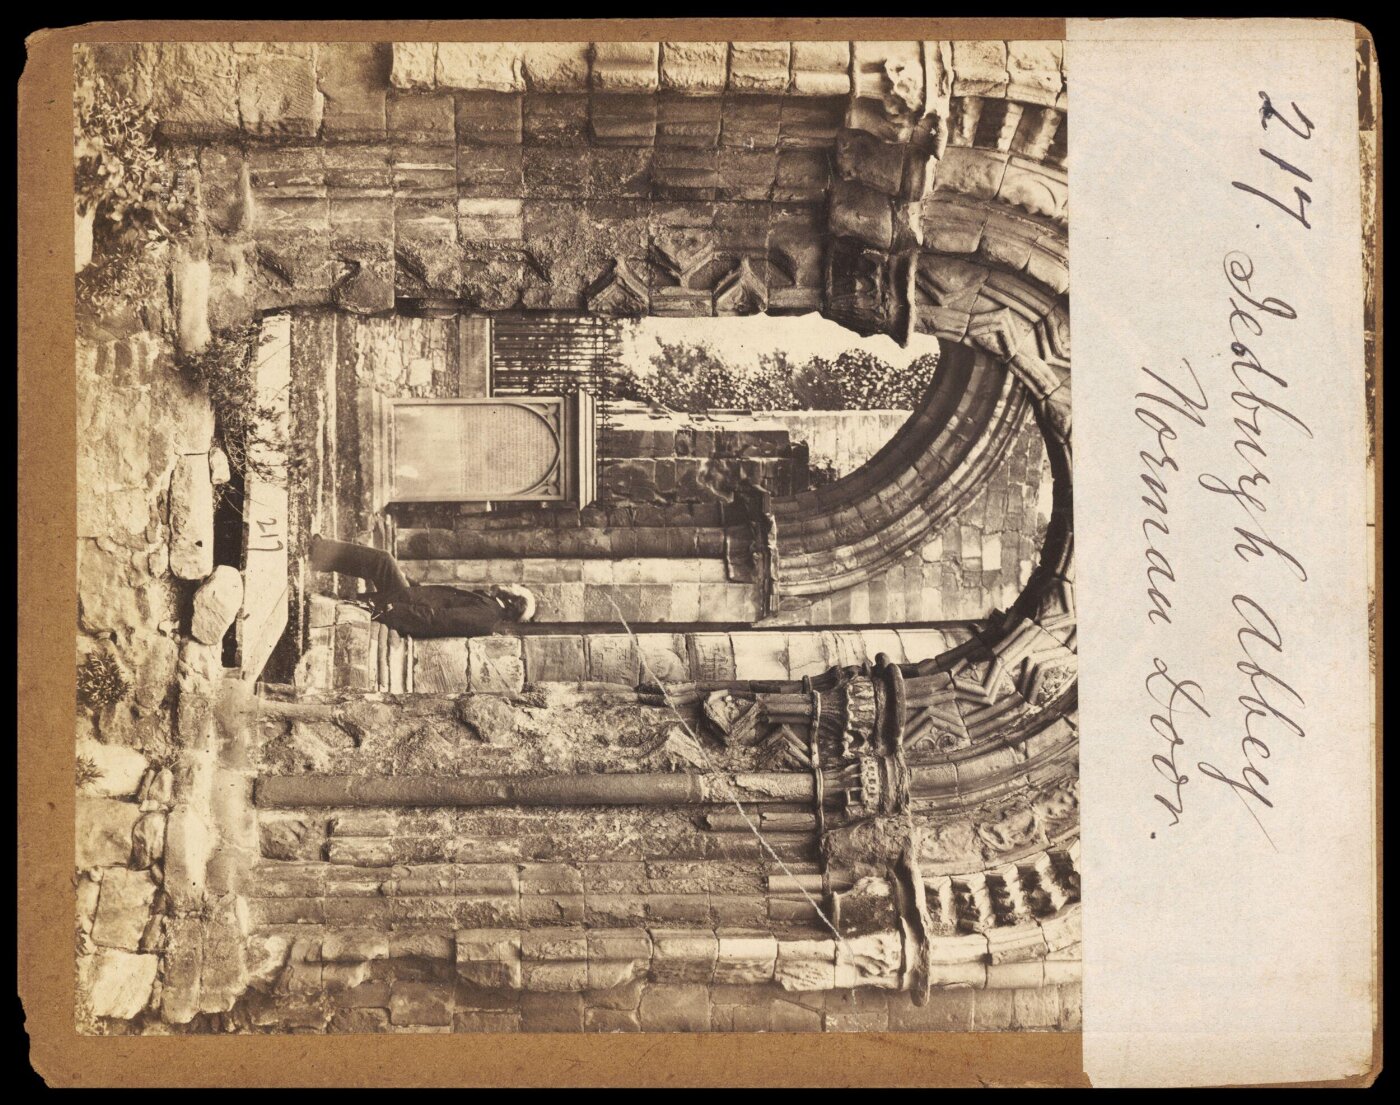 217. Jedburgh Abbey
Norman Door.
217